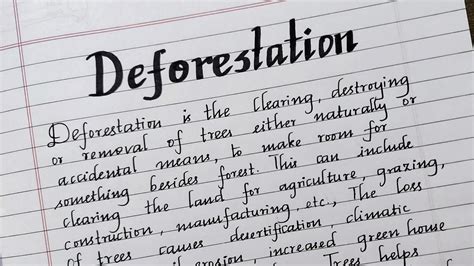 Deforestation
Deforestation is the clearing, destroying
or removal of trees either naturally or
accidental means, to make room for
something besides forest. This can include
clearing the land for agriculture, grazing,
construction, manufacturing, etc., The loss
of trees causes desertification climatic
erosion, increased green house
Trees helps